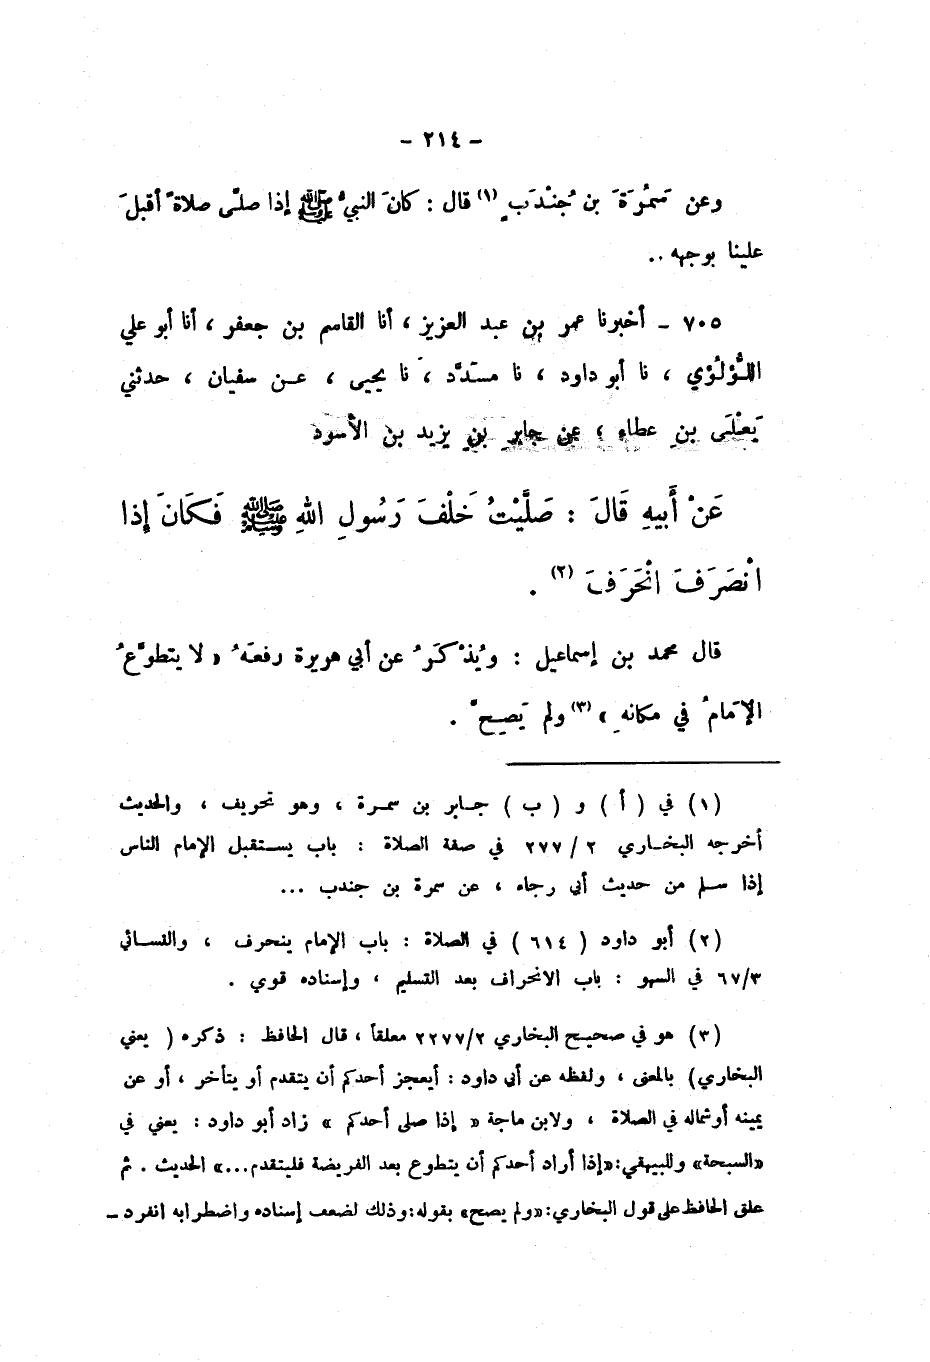 - ٢١٤ -
وعن سَمُرَةَ بن جُنْدَبٍ (١) قال : كانَ النبيُّ ﷺ إذا صلّى صلاةً أقبلَ
علينا بوجهه ..
٧٠٥ - أخبرنا عمر بن عبد العزيز ، أنا القاسم بن جعفر ، أنا أبو علي
اللُّؤْلُؤي ، نا أبو داود ، نا مسدَّد ، نا يحيى ، عن سفيان ، حدثني
يَعْلَى بن عطاءٍ ، عن جابرِ بنِ يزيد بن الأسود
عَنْ أَبيهِ قَالَ : صَلَّيْتُ خَلْفَ رَسُولِ اللهِ ﷺ فَكَانَ إِذا
انْصَرَفَ انْحَرَفَ (٢) .
قال محمد بن إسماعيل : ويُذْكَرُ عن أبي هريرة رفعَهُ « لا يتطوَّعُ
الإمَامُ في مكانهِ » (٣) ولم يَصِحَّ .
(١) في ( أ ) و ( ب ) جابر بن سمرة ، وهو تحريف ، والحديث
أخرجه البخاري ٢ / ٢٧٧ في صفة الصلاة : باب يستقبل الإمام الناس
إذا سلم من حديث أبي رجاء ، عن سمرة بن جندب ...
(٢) أبو داود ( ٦١٤ ) في الصلاة : باب الإمام ينحرف ، والنسائي
٦٧/٣ في السهو : باب الانحراف بعد التسليم ، وإسناده قوي .
(٣) هو في صحيح البخاري ٢٢٧٧/٢ معلقاً ، قال الحافظ : ذكره ( يعني
البخاري) بالمعنى ، ولفظه عن أبي داود : أيعجز أحدكم أن يتقدم أو يتأخر ، أو عن
يمينه أوشماله في الصلاة ، ولابن ماجة « إذا صلى أحدكم » زاد أبو داود : يعني في
«السبحة» وللبيهقي :«إذا أراد أحدكم أن يتطوع بعد الفريضة فليتقدم...» الحديث . ثم
علق الحافظ على قول البخاري :«ولم يصح» بقوله :وذلك لضعف إسناده واضطرابه انفرد -